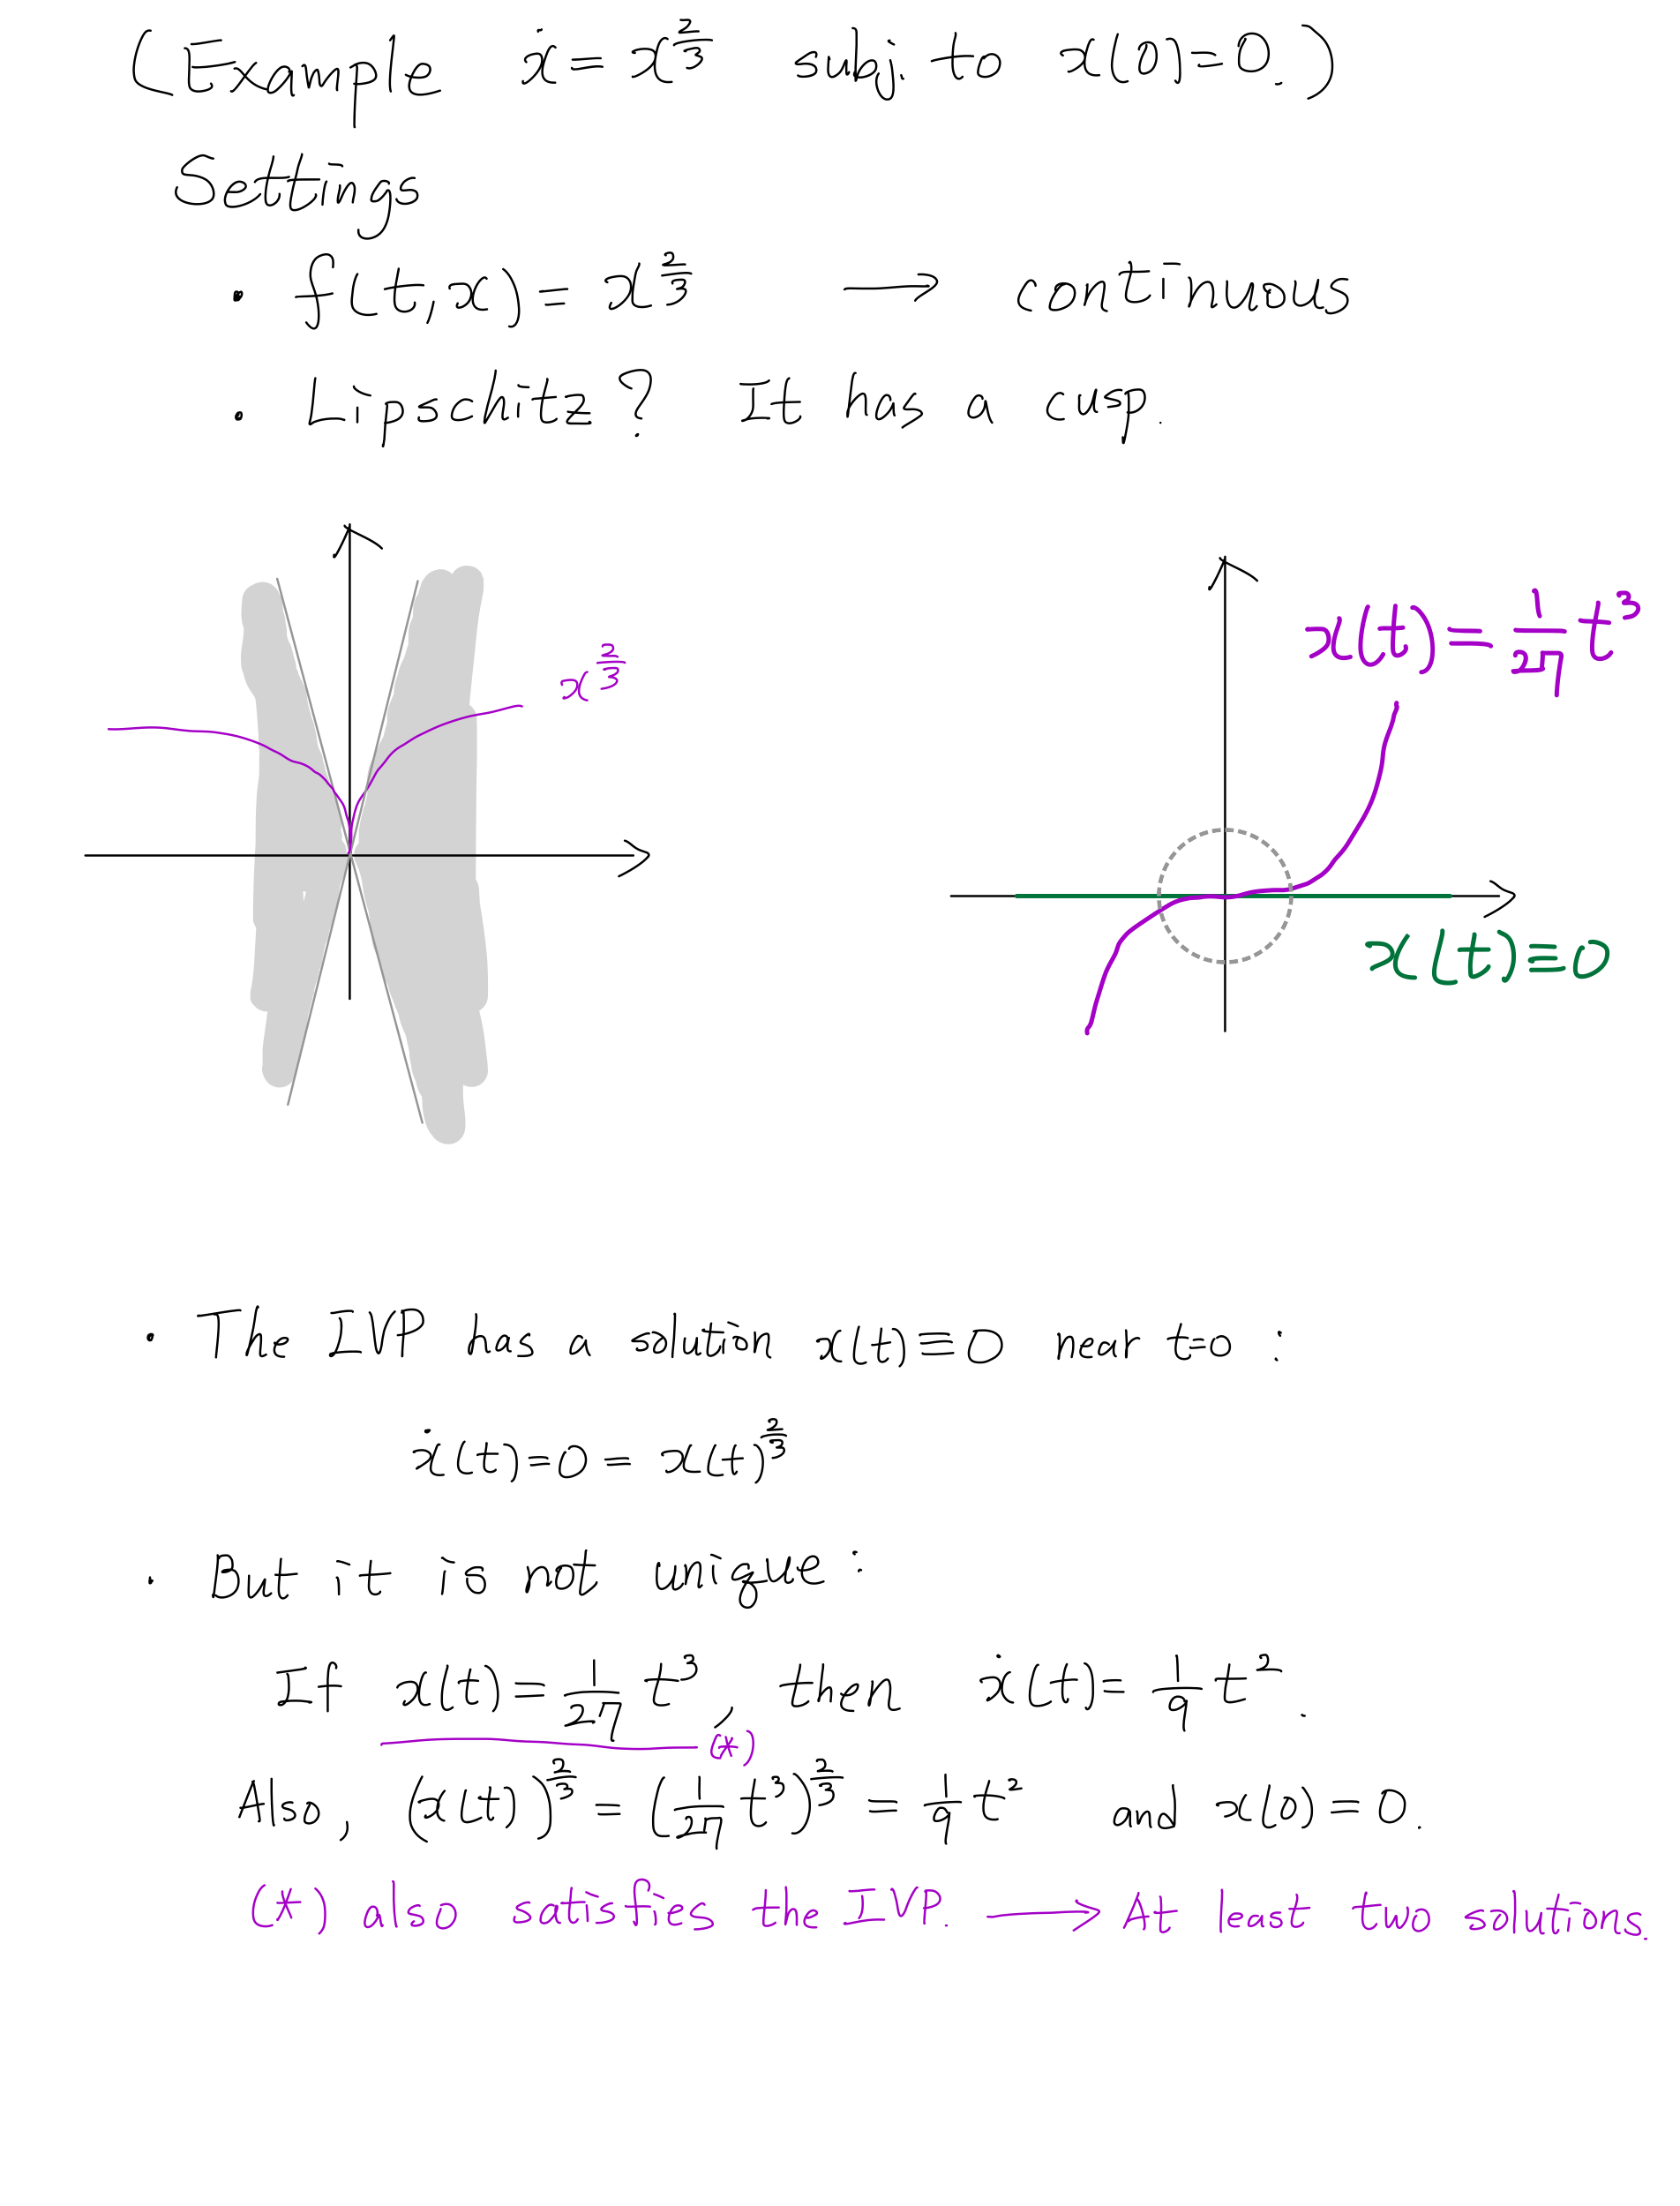 (Example ẋ = x^{2/3} subj. to x(0)=0.)
Settings
• f(t,x) = x^{2/3} → continuous
• Lipschitz? It has a cusp.
x^{2/3}
x(t) = \frac{1}{27} t^3
x(t) ≡ 0
• The IVP has a solutin x(t) ≡ 0 near t=0 :
ẋ(t) = 0 = x(t)^{2/3}
• But it is not unique :
If x(t) = \frac{1}{27} t^3, then ẋ(t) = \frac{1}{9} t^2.
(*)
Also, (x(t))^{2/3} = (\frac{1}{27} t^3)^{2/3} = \frac{1}{9} t^2 and x(0) = 0.
(*) also satisfies the IVP. → At least two solutions.